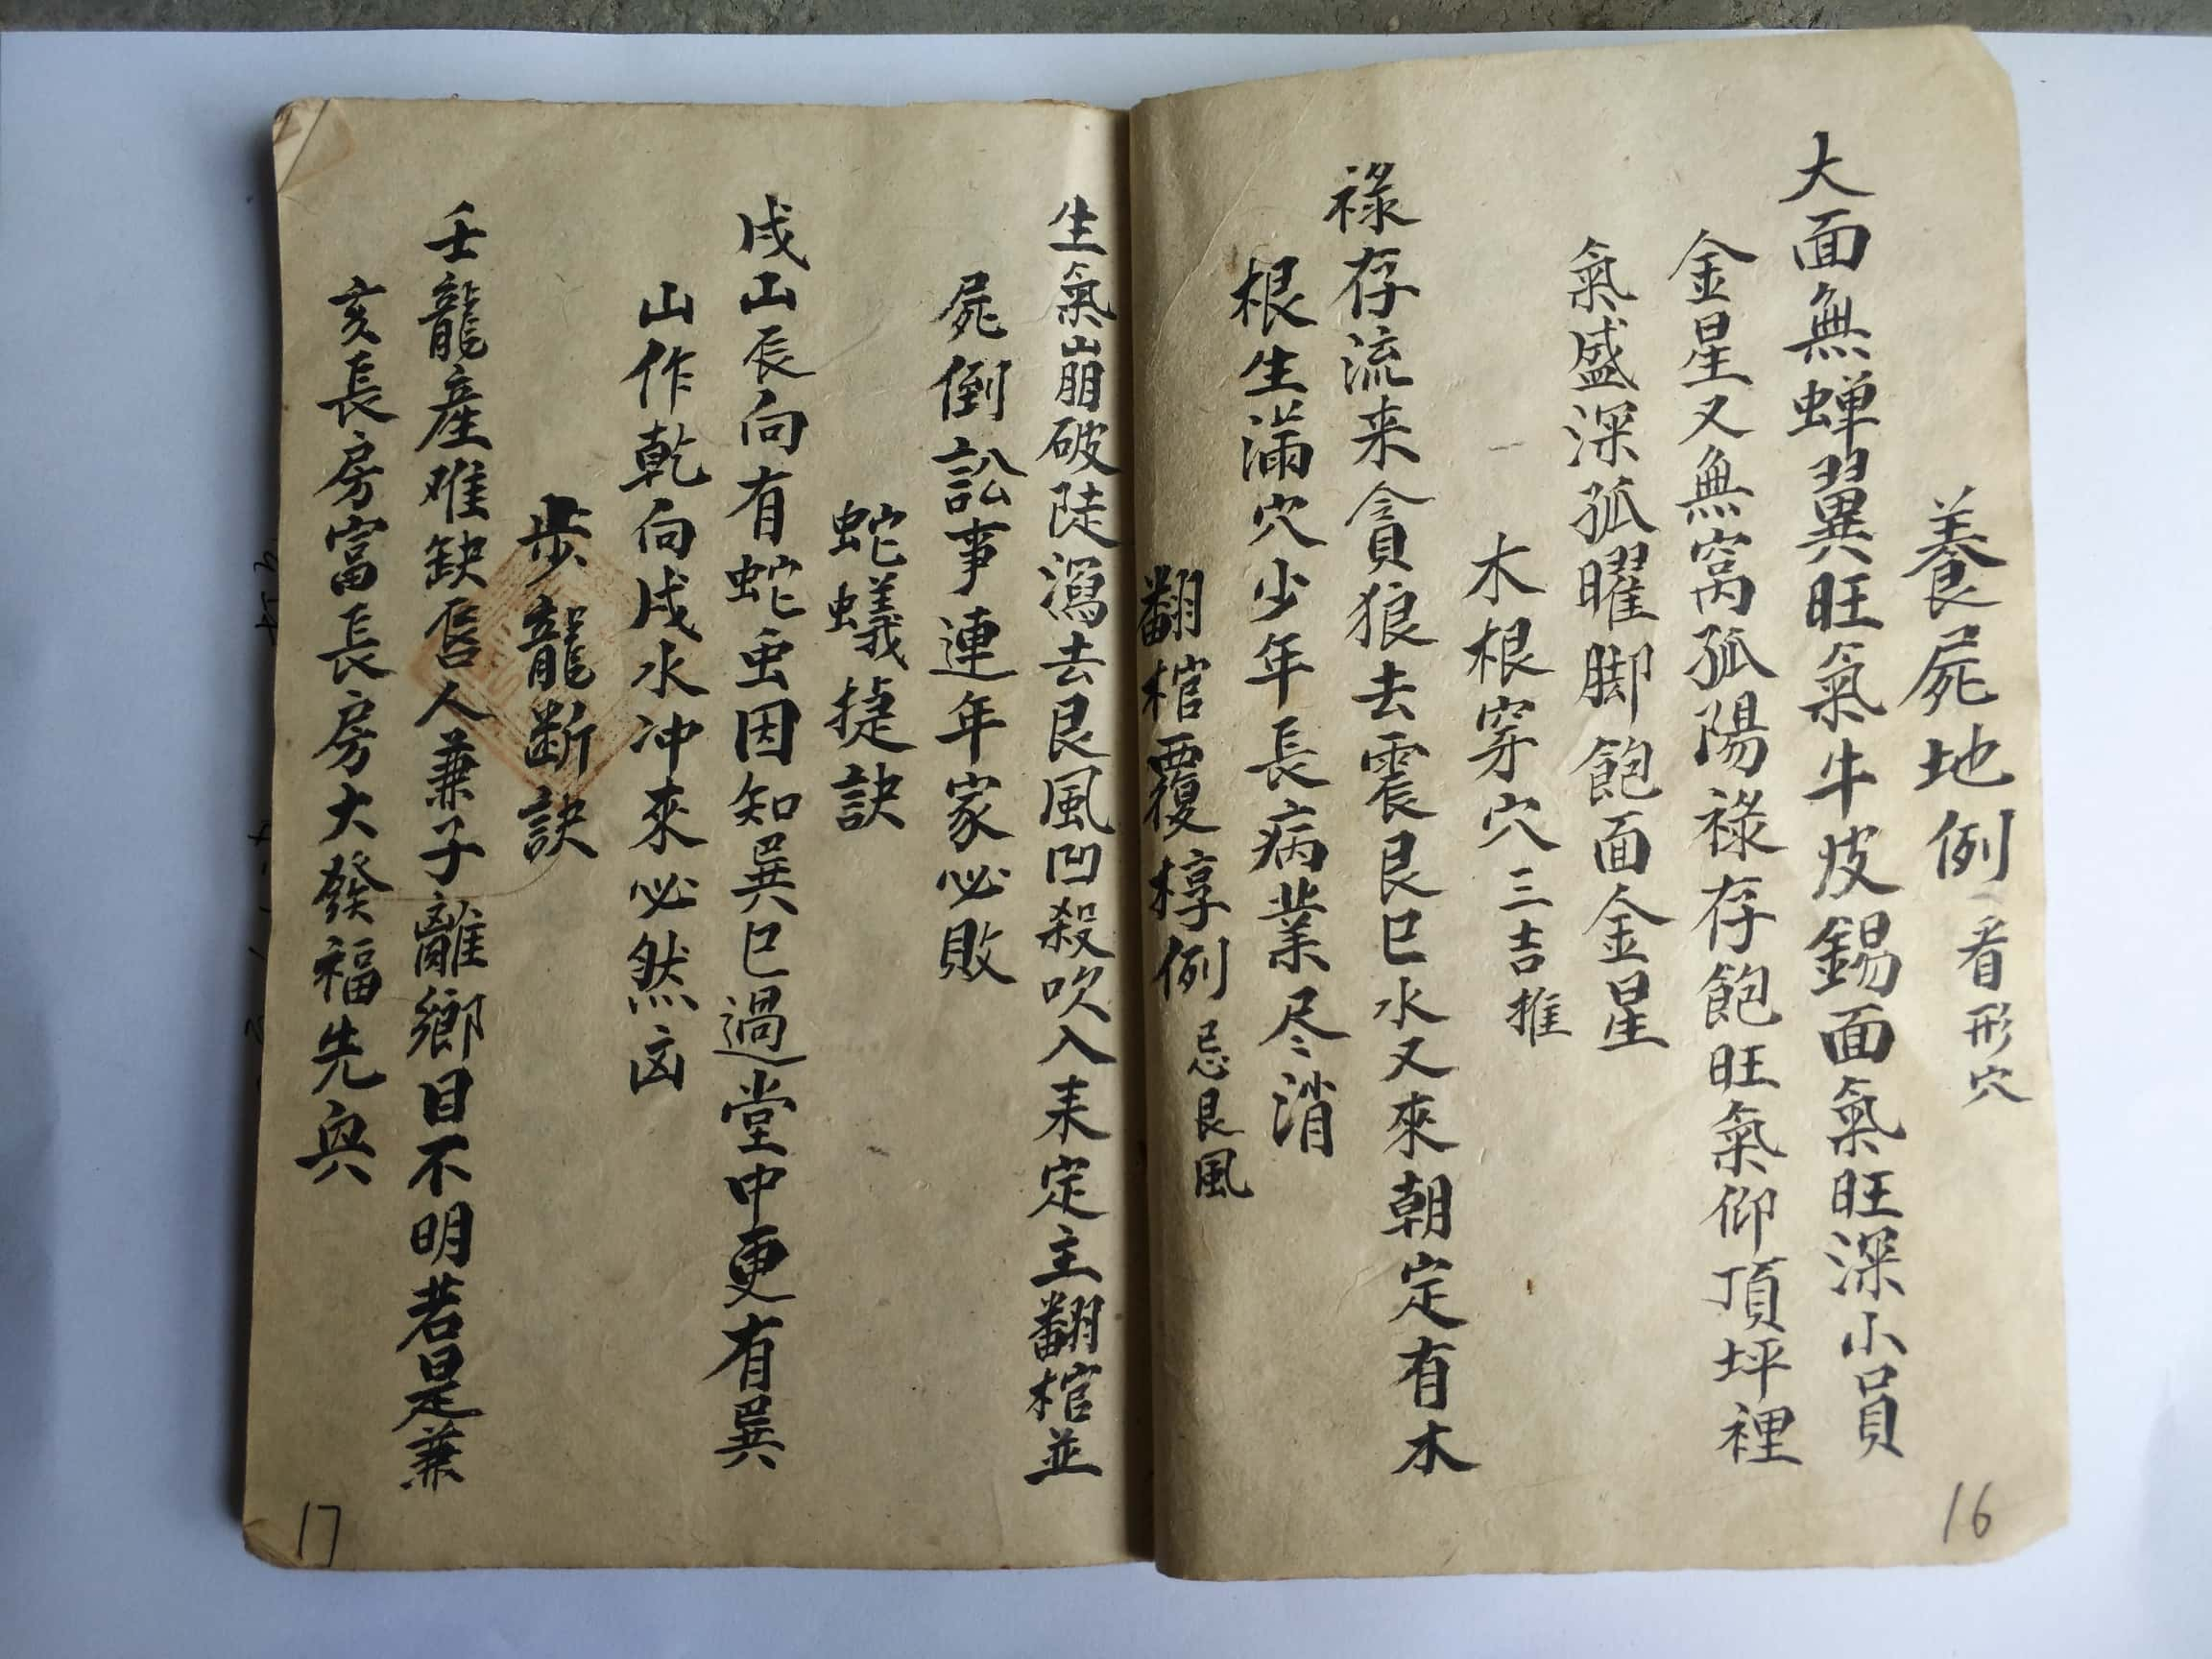 養屍地例 看形穴
大面無蟬翼旺氣牛皮錫面氣旺深小員
金星又無窩孤陽祿存飽旺氣仰頂坪裡
氣盛深孤曜脚飽面金星
木根穿穴 三吉推
祿存流来貪狼去震艮巳水又來朝定有木
根生滿穴少年長病業尽消
翻棺覆椁例 忌艮風
16
生氣崩破陡瀉去艮風凹殺吹入来定主翻棺並
屍倒訟事連年家必敗
蛇蟻捷訣
戌山辰向有蛇虫因知巽巳過堂中更有巽
山作乾向戌水冲來必然凶
步龍断訣
壬龍産难缺唇人兼子離鄉目不明若是兼
亥長房富長房大發福先興
17